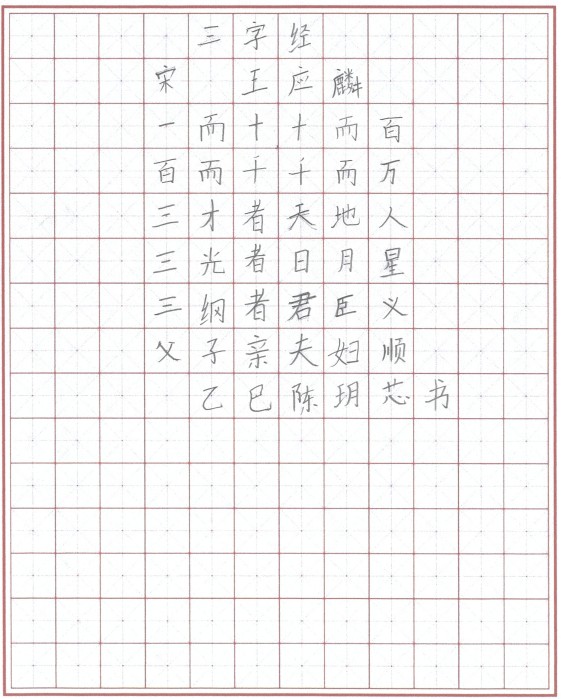 三字经
宋 王应麟
一而十十而百
百而千千而万
三才者天地人
三光者日月星
三纲者君臣义
父子亲夫妇顺
乙巳陈玥芯书